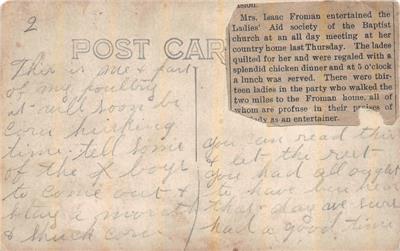 2
POST CARD
This is me & part
of my poultry
it will soon be
corn husking
time. tell some
of the boys
to come out &
stay a month
& shuck corn
Mrs. Isaac Froman entertained the
Ladies' Aid society of the Baptist
church at an all day meeting at her
country home last Thursday. The lades
quilted for her and were regaled with a
splendid chicken dinner and at 5 o'clock
a lunch was served. There were thir-
teen ladies in the party who walked the
two miles to the Froman home, all of
whom are profuse in their praises of
as an entertainer.
you can read this
& let the rest
you had all ought
to have been here
that day we sure
had a good time